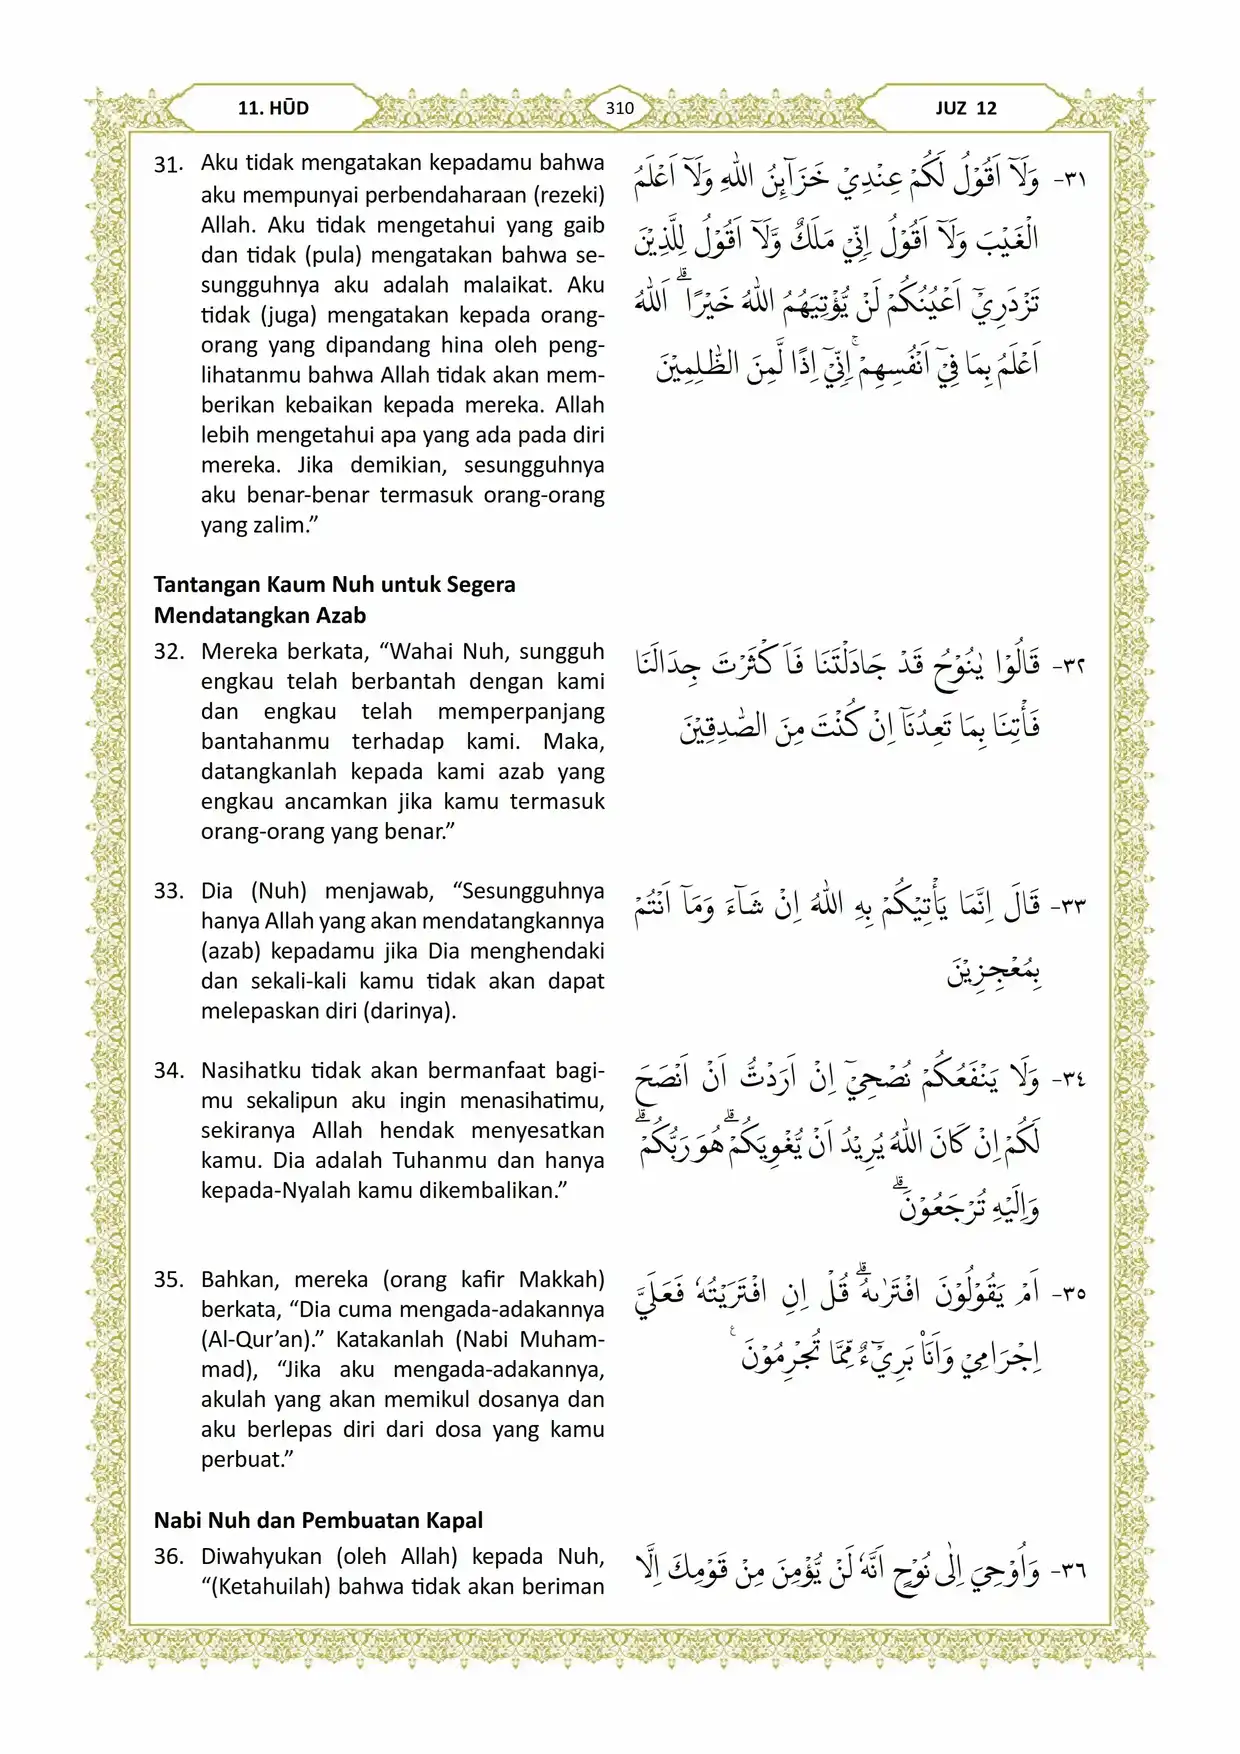 11. HŪD
310
JUZ 12
31. Aku tidak mengatakan kepadamu bahwa
aku mempunyai perbendaharaan (rezeki)
Allah. Aku tidak mengetahui yang gaib
dan tidak (pula) mengatakan bahwa se-
sungguhnya aku adalah malaikat. Aku
tidak (juga) mengatakan kepada orang-
orang yang dipandang hina oleh peng-
lihatanmu bahwa Allah tidak akan mem-
berikan kebaikan kepada mereka. Allah
lebih mengetahui apa yang ada pada diri
mereka. Jika demikian, sesungguhnya
aku benar-benar termasuk orang-orang
yang zalim.”
٣١- وَلَآ اَقُوْلُ لَكُمْ عِنْدِيْ خَزَاۤىِٕنُ اللّٰهِ وَلَآ اَعْلَمُ
الْغَيْبَ وَلَآ اَقُوْلُ اِنِّيْ مَلَكٌ وَّلَآ اَقُوْلُ لِلَّذِيْنَ
تَزْدَرِيْٓ اَعْيُنُكُمْ لَنْ يُّؤْتِيَهُمُ اللّٰهُ خَيْرًا ۗ اَللّٰهُ
اَعْلَمُ بِمَا فِيْٓ اَنْفُسِهِمْ ۚ اِنِّيْٓ اِذًا لَّمِنَ الظّٰلِمِيْنَ
Tantangan Kaum Nuh untuk Segera
Mendatangkan Azab
32. Mereka berkata, “Wahai Nuh, sungguh
engkau telah berbantah dengan kami
dan engkau telah memperpanjang
bantahanmu terhadap kami. Maka,
datangkanlah kepada kami azab yang
engkau ancamkan jika kamu termasuk
orang-orang yang benar.”
٣٢- قَالُوْا يٰنُوْحُ قَدْ جَادَلْتَنَا فَاَ كْثَرْتَ جِدَالَنَا
فَأْتِنَا بِمَا تَعِدُنَآ اِنْ كُنْتَ مِنَ الصّٰدِقِيْنَ
33. Dia (Nuh) menjawab, “Sesungguhnya
hanya Allah yang akan mendatangkannya
(azab) kepadamu jika Dia menghendaki
dan sekali-kali kamu tidak akan dapat
melepaskan diri (darinya).
٣٣- قَالَ اِنَّمَا يَأْتِيْكُمْ بِهِ اللّٰهُ اِنْ شَاۤءَ وَمَآ اَنْتُمْ
بِمُعْجِزِيْنَ
34. Nasihatku tidak akan bermanfaat bagi-
mu sekalipun aku ingin menasihatimu,
sekiranya Allah hendak menyesatkan
kamu. Dia adalah Tuhanmu dan hanya
kepada-Nyalah kamu dikembalikan.”
٣٤- وَلَا يَنْفَعُكُمْ نُصْحِيْٓ اِنْ اَرَدْتُّ اَنْ اَنْصَحَ
لَكُمْ اِنْ كَانَ اللّٰهُ يُرِيْدُ اَنْ يُّغْوِيَكُمْ ۗ هُوَ رَبُّكُمْ ۗ
وَاِلَيْهِ تُرْجَعُوْنَ ۗ
35. Bahkan, mereka (orang kafir Makkah)
berkata, “Dia cuma mengada-adakannya
(Al-Qur’an).” Katakanlah (Nabi Muham-
mad), “Jika aku mengada-adakannya,
akulah yang akan memikul dosanya dan
aku berlepas diri dari dosa yang kamu
perbuat.”
٣٥- اَمْ يَقُوْلُوْنَ افْتَرٰىهُ ۗ قُلْ اِنِ افْتَرَيْتُهٗ فَعَلَيَّ
اِجْرَامِيْ وَاَنَا۠ بَرِيْۤءٌ مِّمَّا تُجْرِمُوْنَ ࣖ
Nabi Nuh dan Pembuatan Kapal
36. Diwahyukan (oleh Allah) kepada Nuh,
“(Ketahuilah) bahwa tidak akan beriman
٣٦- وَاُوْحِيَ اِلٰى نُوْحٍ اَنَّهٗ لَنْ يُّؤْمِنَ مِنْ قَوْمِكَ اِلَّا